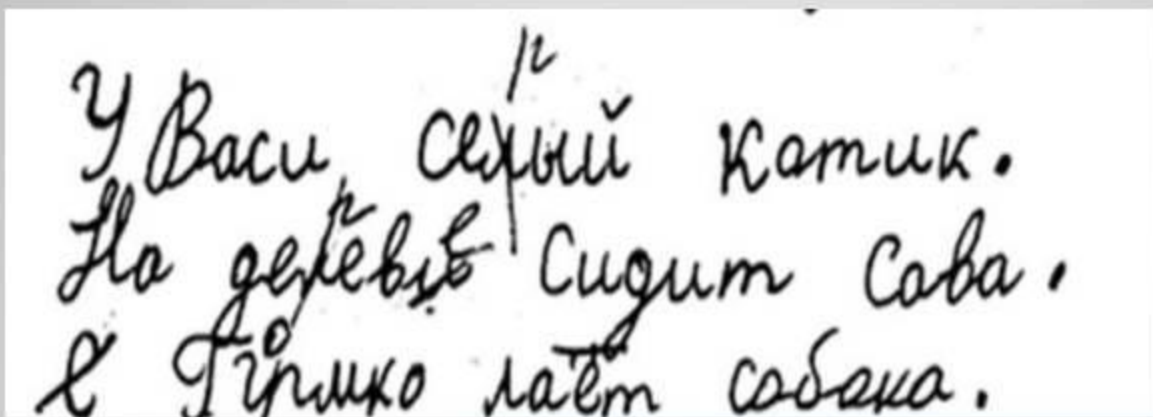 У Васи серый катик.
На деревье Сидит Сава.
лает собака.